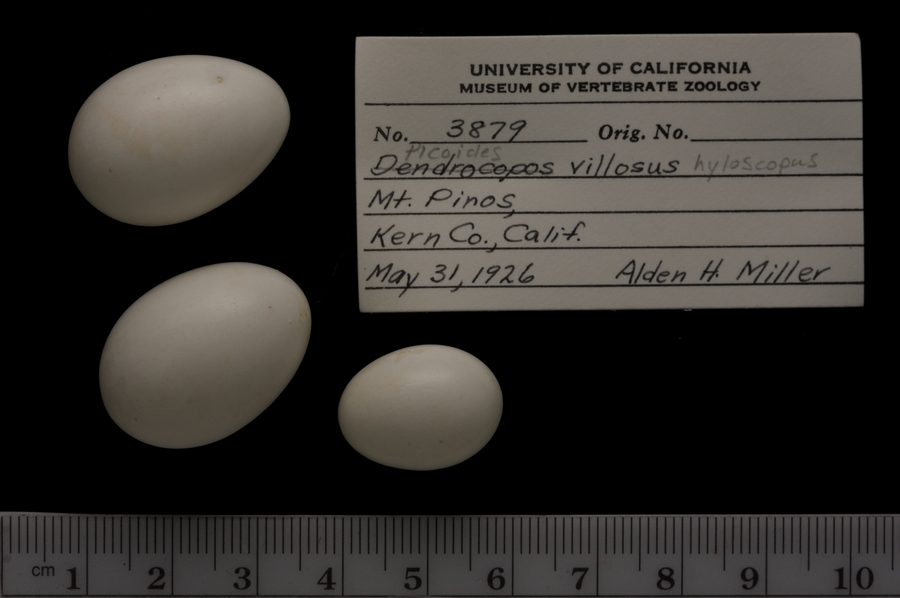 UNIVERSITY OF CALIFORNIA
MUSEUM OF VERTEBRATE ZOOLOGY
No. 3879 Orig. No.
Picoides
Dendrocopos villosus hyloscopus
Mt. Pinos,
Kern Co., Calif.
May 31, 1926 Alden H. Miller
cm 1 2 3 4 5 6 7 8 9 10